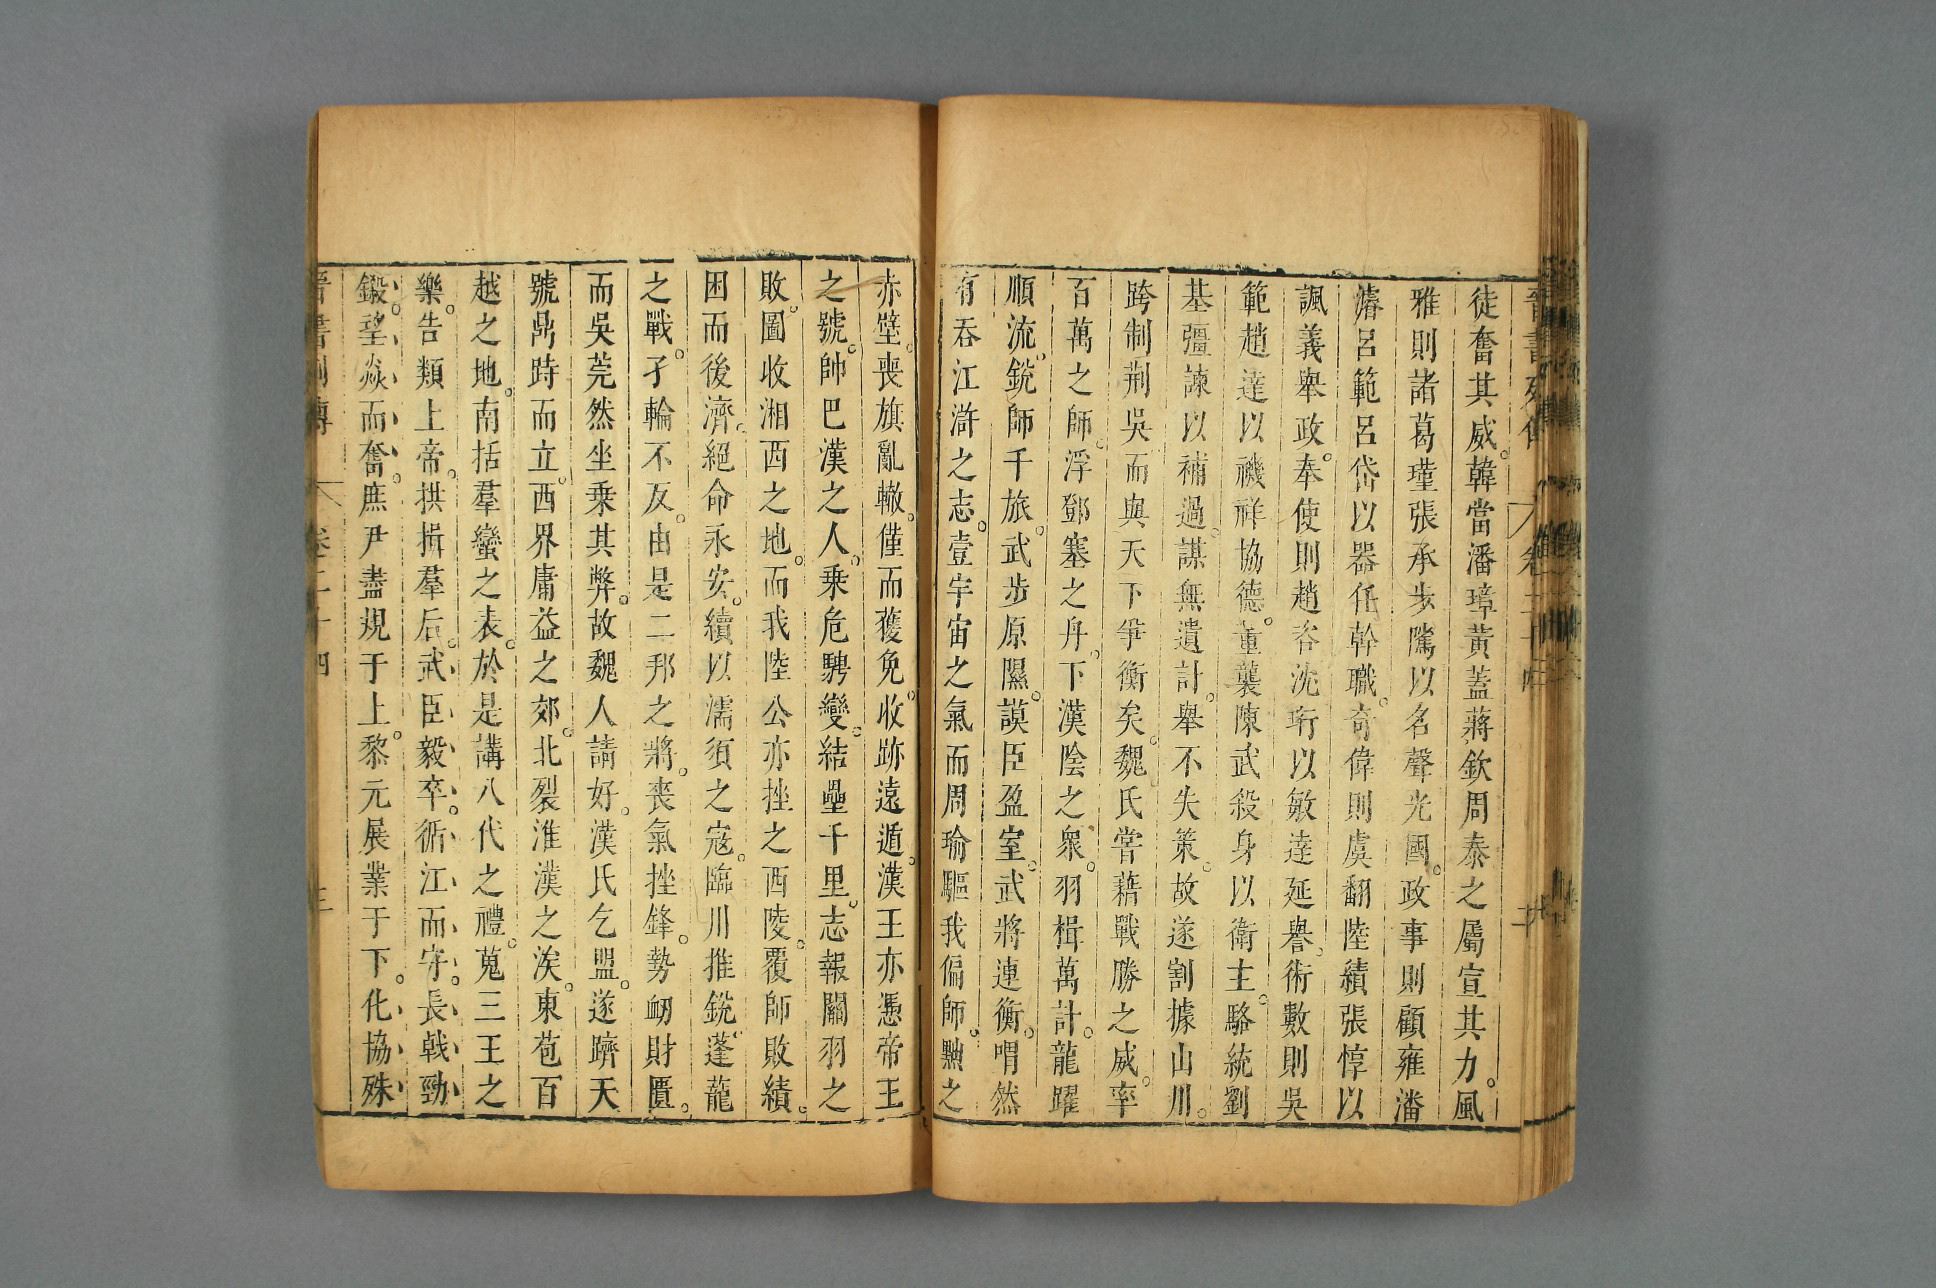 徒奮其威。韓當潘璋黃蓋蔣欽周泰之屬宣其力。風
雅則諸葛瑾張承步騭以名聲光國。政事則顧雍潘
濬呂範呂岱以器任幹職。奇偉則虞翻陸績張惇以
諷義舉政。奉使則趙咨沈珩以敏達延譽。術數則吳
範趙達以禨祥協德。董襲陳武殺身以衛主。駱統劉
基彊諫以補過。謀無遺計。舉不失策。故遂割據山川。
跨制荆吳而與天下爭衡矣。魏氏嘗藉戰勝之威。率
百萬之師。浮鄧塞之舟。下漢陰之衆。羽楫萬計。龍躍
順流。銳師千旅。武步原隰。謨臣盈室。武將連衡。喟然
有吞江滸之志。壹宇宙之氣而周瑜驅我偏師。黜之
赤壁。喪旗亂轍。僅而獲免。收跡遠遁。漢王亦憑帝王
之號。帥巴漢之人。乗危騁變。結壘千里。志報關羽之
敗。圖收湘西之地。而我陸公亦挫之西陵。覆師敗績。
困而後濟。絕命永安。續以濡須之寇。臨川摧銳。蓬蘢
之戰。孑輪不反。由是二邦之將。喪氣挫鋒。勢衂財匱。
而吳莞然坐乗其弊。故魏人請好。漢氏乞盟。遂躋天
號鼎跱而立。西界庸益之郊。北裂淮漢之涘。東苞百
越之地。南括羣蠻之表。於是講八代之禮。蒐三王之
樂。告類上帝。拱揖羣后。武臣毅卒。循江而守。長戟勁
鎩。望焱而奮。庶尹盡規于上。黎元展業于下。化協殊
晉書列傳 卷二十四 三